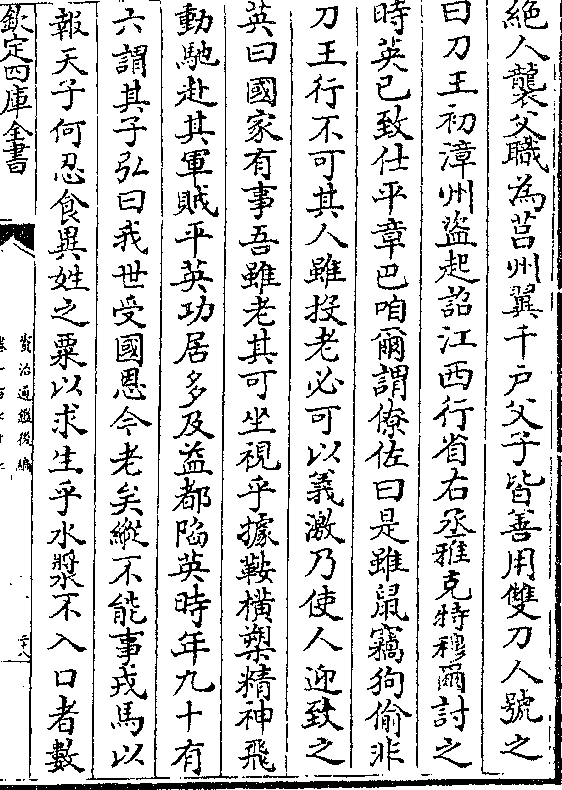 絶人襲父職為莒州翼千戸父子皆善用雙刀人號之
曰刀王初漳州盜起詔江西行省右丞雅克特穆爾討之
時英已致仕平章巴咱爾謂僚佐曰是雖鼠竊狗偷非
刀王行不可其人雖投老必可以義激乃使人迎致之
英曰國家有事吾雖老其可坐視乎據鞍橫槊精神飛
動馳赴其軍賊平英功居多及益都陷英時年九十有
六謂其子弘曰我世受國恩今老矣縱不能事戎馬以
報天子何忍食異姓之粟以求生乎水漿不入口者數
欽定四庫全書
資治通鑑後編